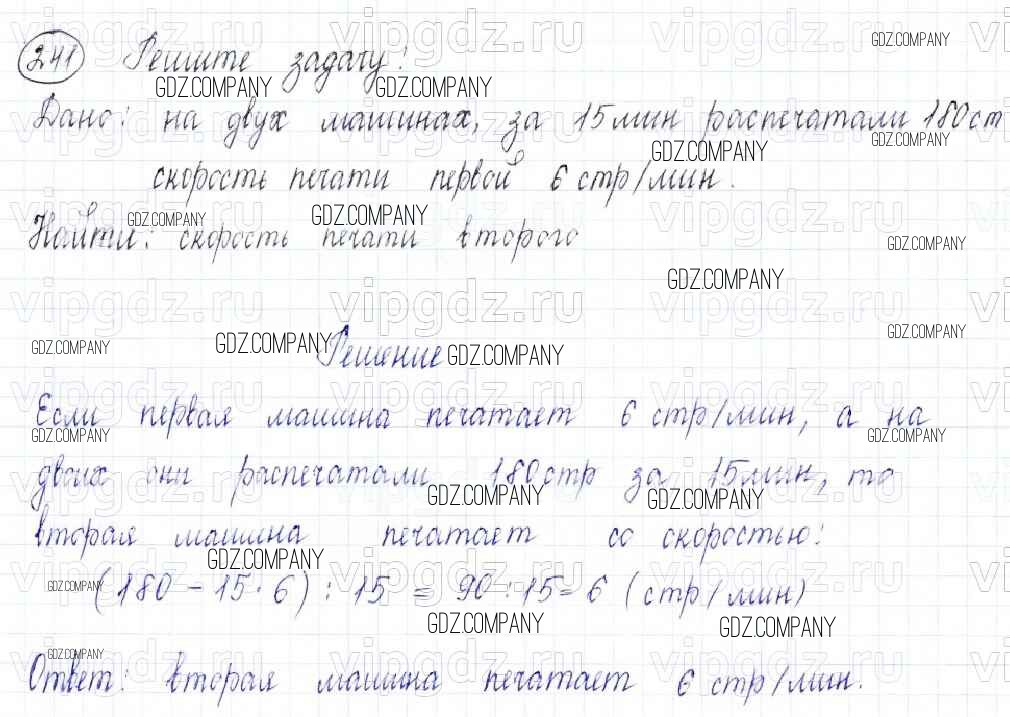 241 Решите задачу:
Дано: на двух машинах, за 15 мин распечатали 180 ст
скорость печати первой 6 стр/мин.
Найти: скорость печати второго
Решение
Если первая машина печатает 6 стр/мин, а на
двоих они распечатали 180 стр за 15 мин, то
вторая машина печатает со скоростью:
(180 - 15 · 6) : 15 = 90 : 15 = 6 (стр/мин)
Ответ: вторая машина печатает 6 стр/мин.